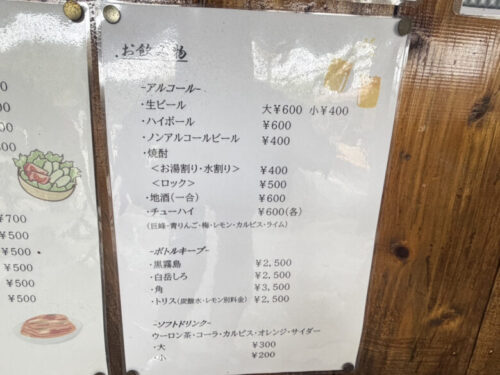 お飲み物
-アルコール-
・生ビール 大¥600 小¥400
・ハイボール ¥600
・ノンアルコールビール ¥400
・焼酎
<お湯割り・水割り> ¥400
<ロック> ¥500
・地酒(一合) ¥600
・チューハイ ¥600(各)
(巨峰・青りんご・梅・レモン・カルピス・ライム)
-ボトルキープ-
・黒霧島 ¥2,500
・白岳しろ ¥2,500
・角 ¥3,500
・トリス(炭酸水・レモン別料金) ¥2,500
-ソフトドリンク-
ウーロン茶・コーラ・カルピス・オレンジ・サイダー
・大 ¥300
・小 ¥200
¥700
¥500
¥500
¥500
¥500